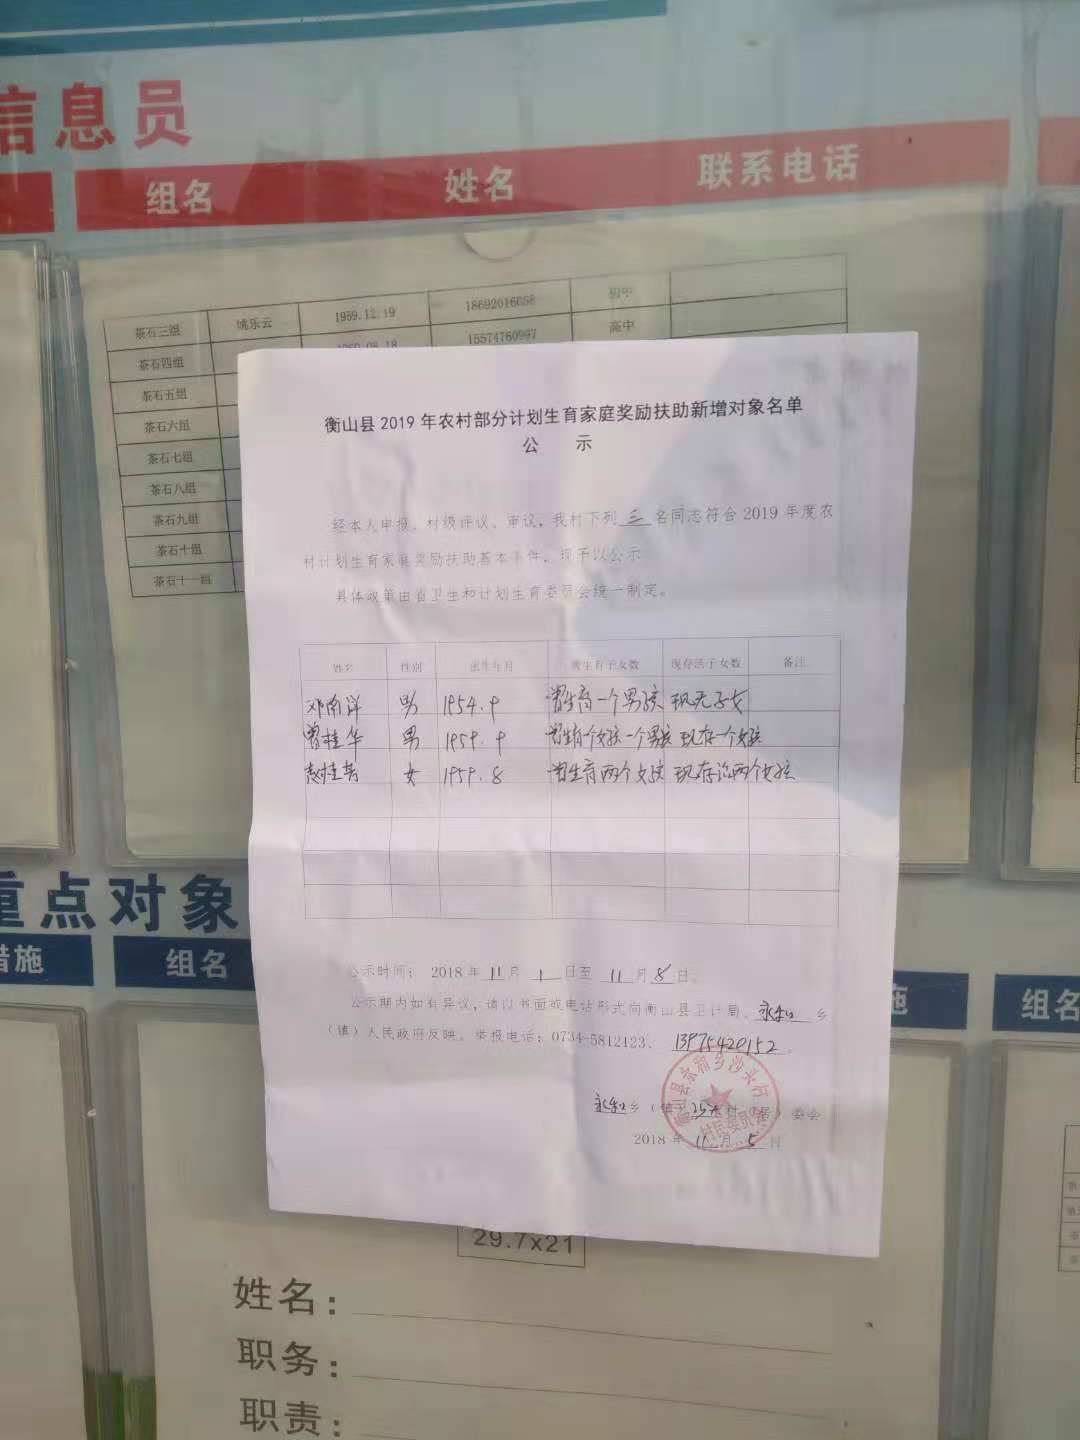 信息员
组名 姓名 联系电话
茶石三组 姚乐云 1959.12.19 18692016658 初中
茶石四组 15574760997 高中
茶石五组
茶石六组
茶石七组
茶石八组
茶石九组
茶石十组
茶石十一组
衡山县2019年农村部分计划生育家庭奖励扶助新增对象名单
公 示
经本人申报、村级评议、审议，我村下列 三 名同志符合2019年度农
村计划生育家庭奖励扶助基本条件，现予以公示
具体政策由省卫生和计划生育委员会统一制定。
姓名 性别 出生年月 曾生育子女数 现存活子女数 备注
邓南洋 男 1954.9 曾生育一个男孩 现无子女
曾桂华 男 1959.9 曾生育个女孩一个男孩 现存一个女孩
赵桂 女 1959.8 曾生育两个女孩 现存活两个女孩
公示时间：2018年11月1日至11月8日。
公示期内如有异议，请以书面或电话形式向衡山县卫计局、永和 乡
（镇）人民政府反映。举报电话：0734-5812123、13975420152.
衡山县永和乡沙头村
村民委员会
永和乡（镇） 村（居）委会
2018年11月5日
重点对象
措施 组名 施 组名
29.7x21
姓名：
职务：
职责：